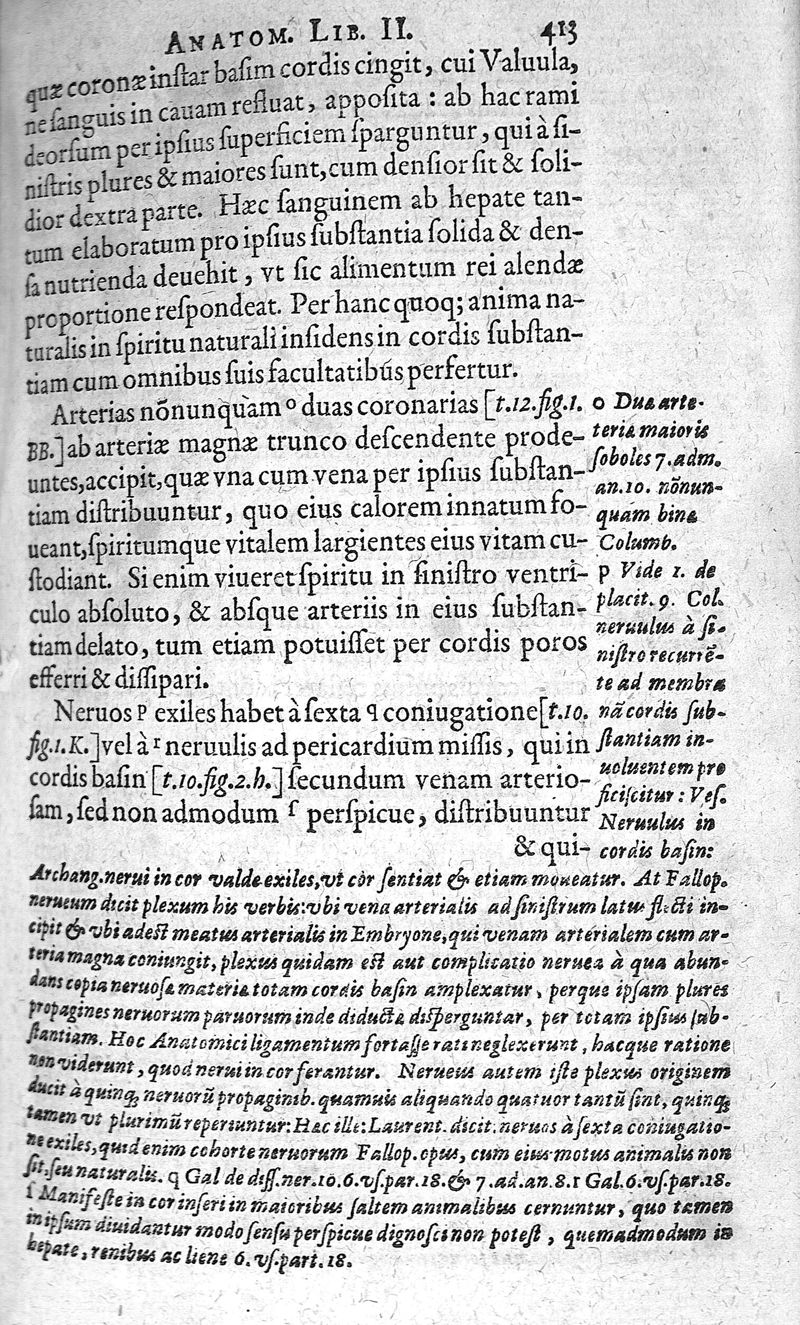 ANATOM. LIB. II. 413
quæ coronæ inſtar baſim cordis cingit, cui Valuula,
ne ſanguis in cauam refluat, appoſita : ab hac rami
deorſum per ipſius ſuperficiem ſparguntur, qui à ſi-
niſtris plures & maiores ſunt, cum denſior ſit & ſoli-
dior dextra parte. Hæc ſanguinem ab hepate tan-
tum elaboratum pro ipſius ſubſtantia ſolida & den-
ſa nutrienda deuehit, vt ſic alimentum rei alendæ
proportione reſpondeat. Per hanc quoq; anima na-
turalis in ſpiritu naturali inſidens in cordis ſubſtan-
tiam cum omnibus ſuis facultatibús perfertur.
Arterias nõnunquàm o duas coronarias [t.12.fig.1.
BB.] ab arteriæ magnæ trunco deſcendente prode-
untes, accipit, quæ vna cum vena per ipſius ſubſtan-
tiam diſtribuuntur, quo eius calorem innatum fo-
ueant, ſpiritumque vitalem largientes eius vitam cu-
ſtodiant. Si enim viueret ſpiritu in ſiniſtro ventri-
culo abſoluto, & abſque arteriis in eius ſubſtan-
tiam delato, tum etiam potuiſſet per cordis poros
efferri & diſſipari.
Neruos p exiles habet à ſexta q coniugatione [t.10.
fig.1.K.] vel à r neruulis ad pericardium miſſis, qui in
cordis baſin [t.10.fig.2.h.] ſecundum venam arterio-
ſam, ſed non admodum ſ perſpicue, diſtribuuntur
& qui-
o Duæ arte-
teriæ maioris
ſoboles 7. adm.
an.10. nõnun-
quam binæ
Columb.
p Vide 1. de
placit. 9. Col.
neruulus à ſi-
niſtro recurrẽ-
te ad membra
nã cordis ſub-
ſtantiam in-
uoluentem pro
ficiſcitur : Veſ.
Neruulus in
cordis baſin:
Archang. nerui in cor valde exiles, vt cor ſentiat & etiam moueatur. At Fallop.
nerueum dicit plexum his verbis: vbi vena arterialis ad ſiniſtrum latus flecti in-
cipit & vbi adeſt meatus arterialis in Embryone, qui venam arterialem cum ar-
teria magna coniungit, plexus quidam eſt aut complicatio neruea à qua abun-
dans copia neruoſæ materiæ totam cordis baſin amplexatur, perque ipſam plures
propagines neruorum paruorum inde diductæ diſperguntar, per totam ipſius ſub-
ſtantiam. Hoc Anatomici ligamentum fortaſſe rati neglexerunt, hacque ratione
non viderunt, quod nerui in cor ferantur. Nerueus autem iſte plexus originem
ducit à quinq; neruorũ propaginib. quamuis aliquando quatuor tantũ ſint, quinq;
tamen vt plurimũ reperiuntur: Hæc ille: Laurent. dicit. neruos à ſexta coniugatio-
ne exiles, quid enim cohorte neruorum Fallop. opus, cum eius motus animalis non
ſit, ſeu naturalis. q Gal de diſſ. ner. 10. 6. vſ. par. 18. & 7. ad. an. 8. r Gal. 6. vſ. par. 18.
ſ Manifeſte in cor inſeri in maioribus ſaltem animalibus cernuntur, quo tamen
in ipſum diuidantur modo ſenſu perſpicue dignoſci non poteſt, quemadmodum in
hepate, renibus ac liene 6. vſ. part. 18.